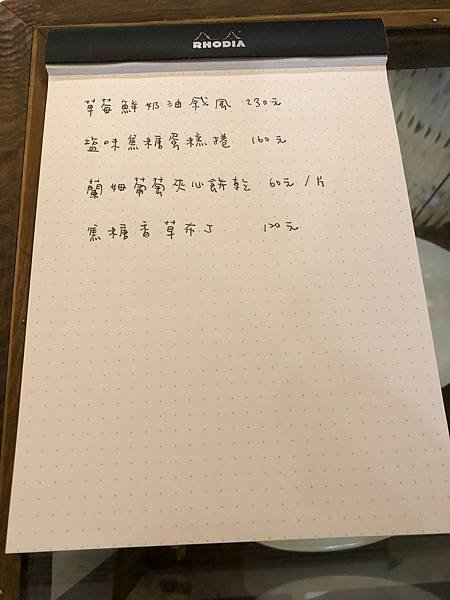 RHODIA
草莓鮮奶油戚風 230元
塩味焦糖蛋糕捲 160元
蘭姆葡萄夾心餅乾 60元/片
焦糖香草布丁 120元